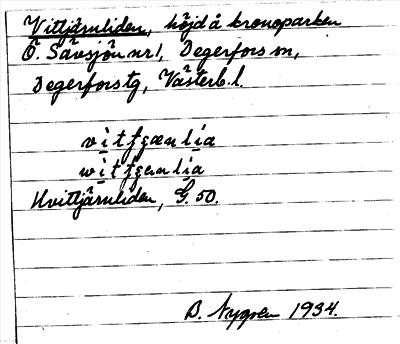 Vittjärnliden, höjd å kronoparken
Ö. Sävsjön nr 1, Degerfors sn,
Degerfors tg, Västerb. l.
vitfgænlia
witfgænlia
Hvittjärnliden, G. 50.
B. Nygren 1934.